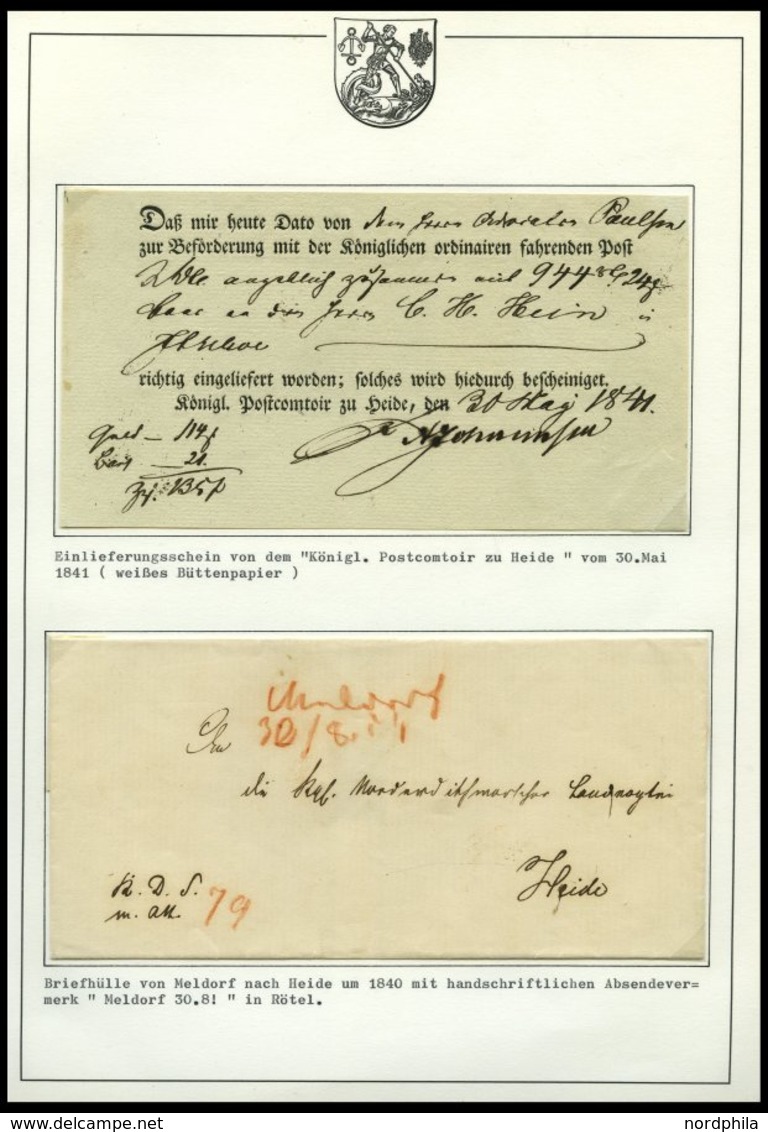 Daß mir heute Dato von dem Herrn Advocaten Paulsen
zur Beförderung mit der Königlichen ordinairen fahrenden Post
angeblich zusammen mit 944
an den Herrn C. H. Hein in
Itzehoe
richtig eingeliefert worden; solches wird hiedurch bescheiniget.
Königl. Postcomtoir zu Heide, den 30 May 1841.
Einlieferungsschein von dem "Königl. Postcomtoir zu Heide " vom 30.Mai
1841 ( weißes Büttenpapier )
Meldorf
An 30/8.
die Kgl. Norderdithmarscher Landvogtei
Heide
K. D. S.
m. Att. 79
Briefhülle von Meldorf nach Heide um 1840 mit handschriftlichen Absendever=
merk " Meldorf 30.8! " in Rötel.
www.delcampe.net
nordphila